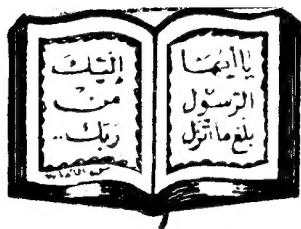 يا أيها
الرسول
بلغ ما نزل
إليك
من
ربك..